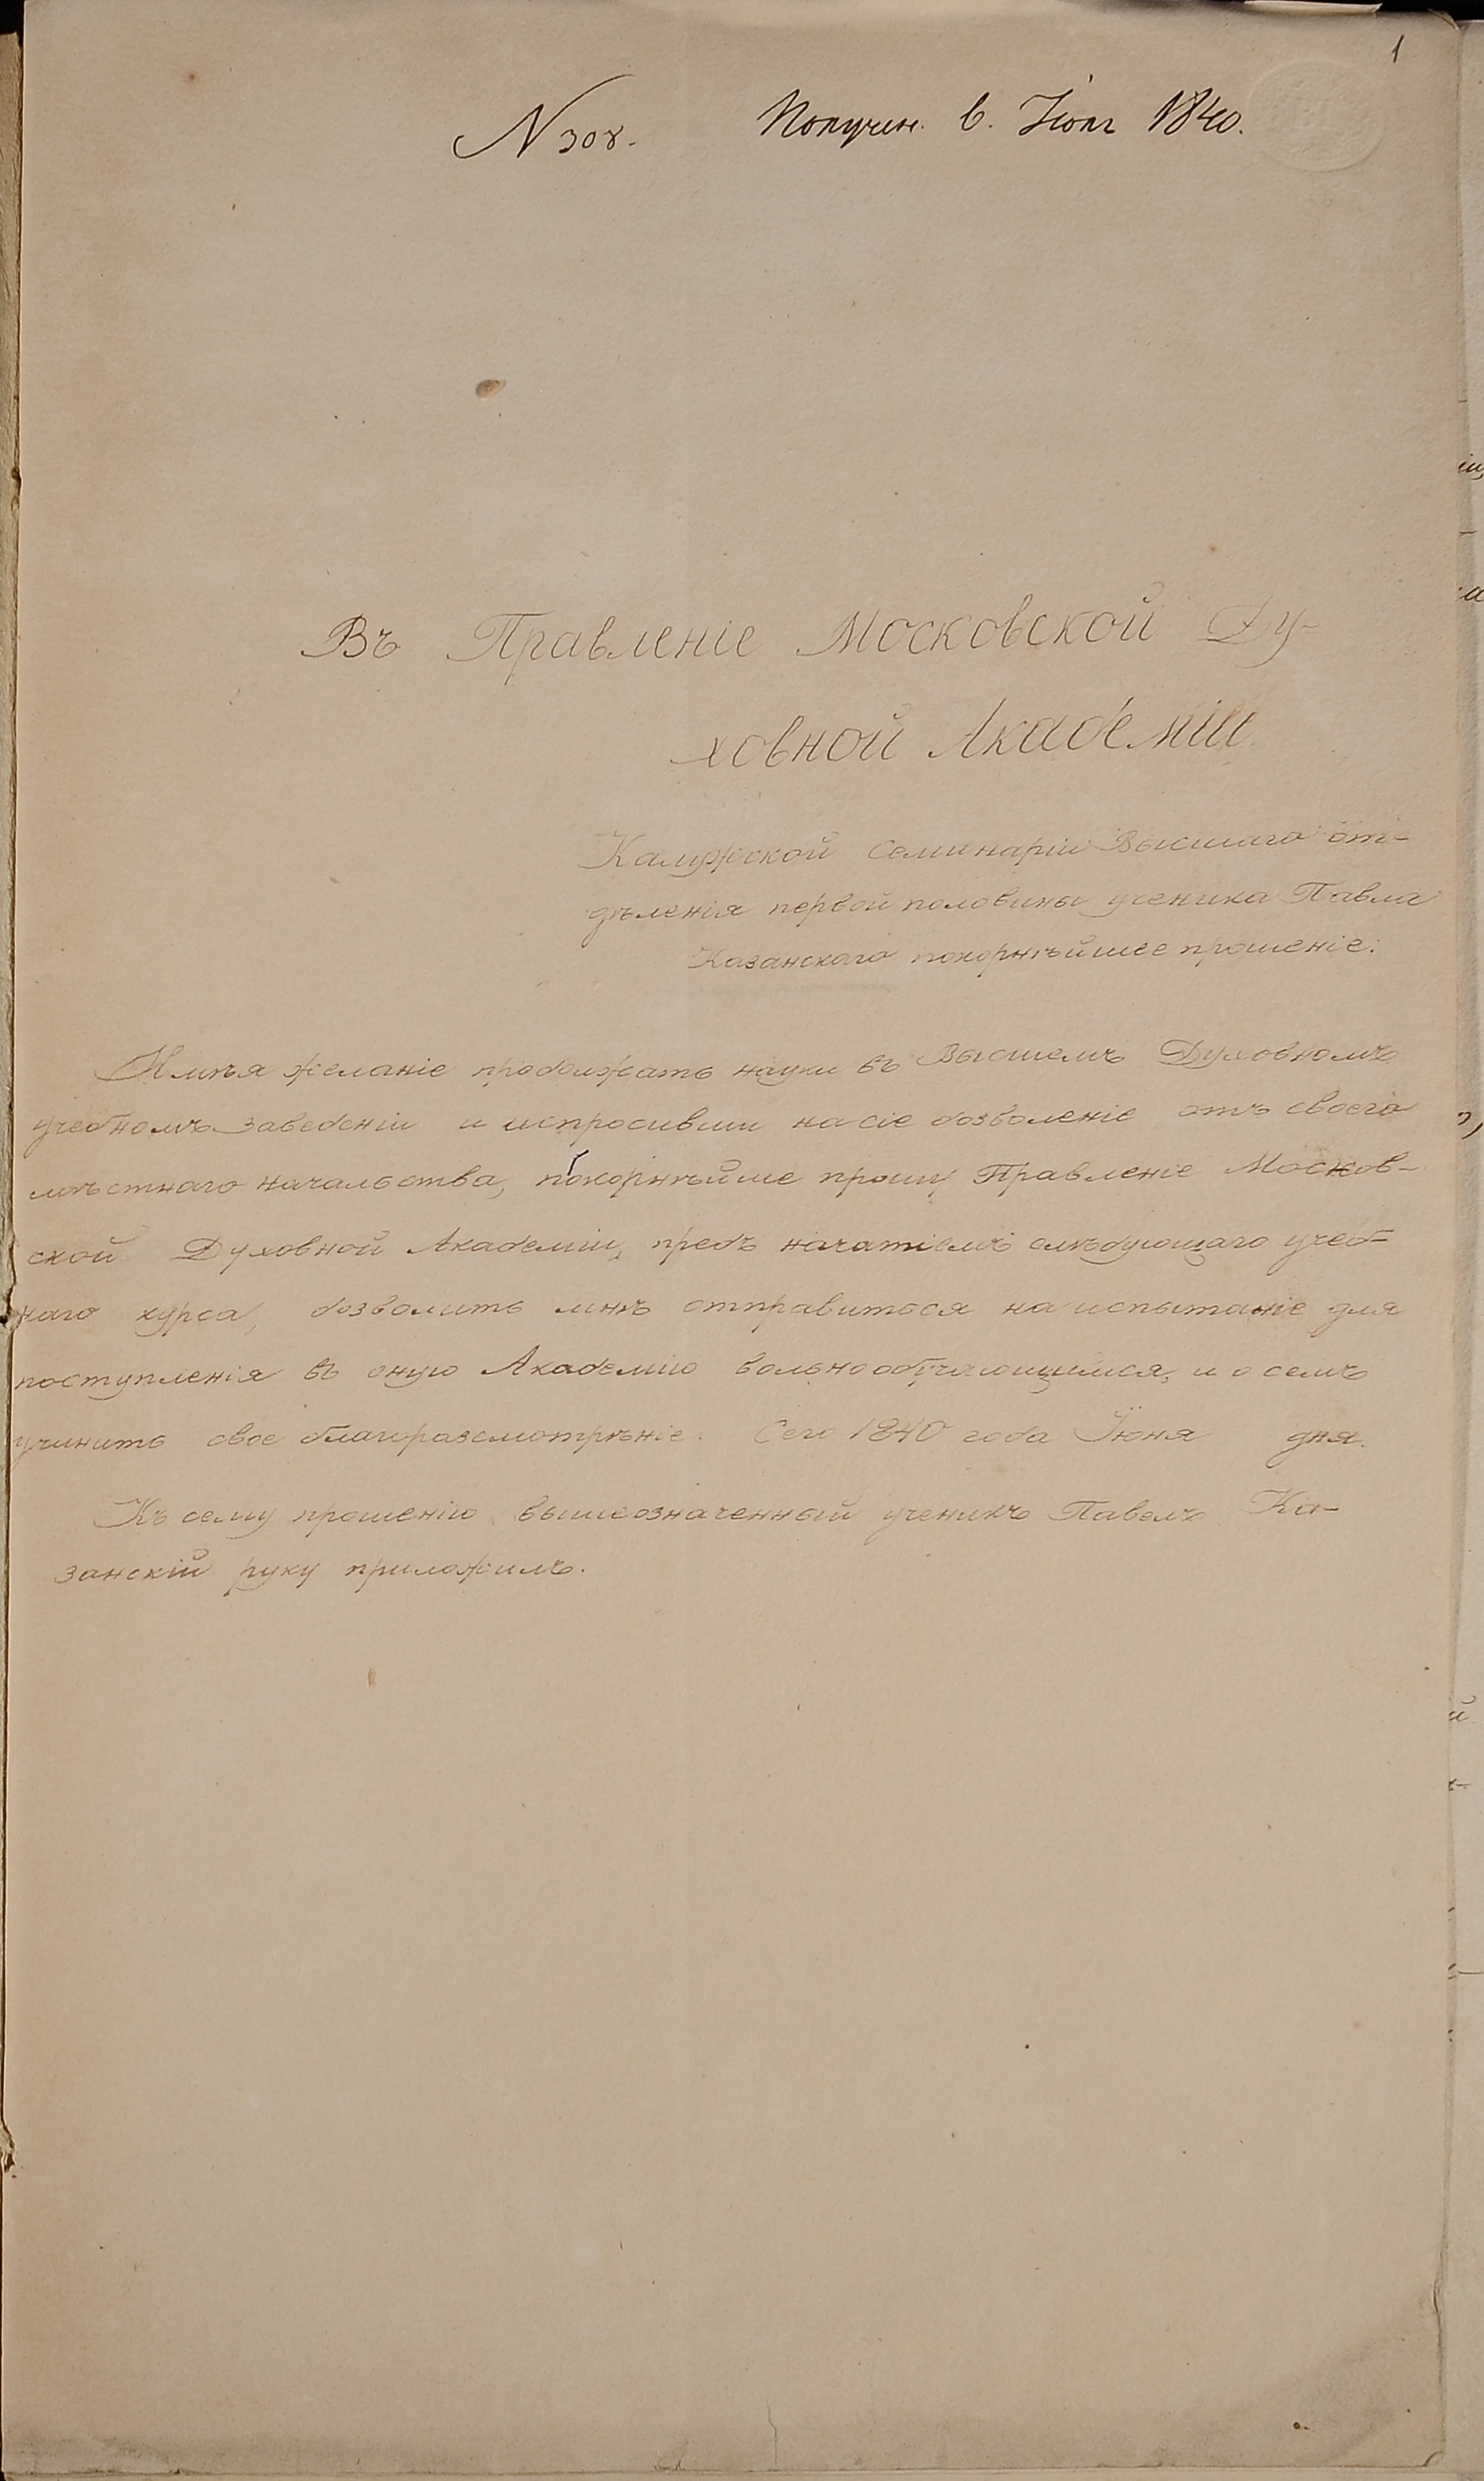 1
N 308. Получен. 6. Іюля 1840.
Въ Правленіе Московской Ду-
ховной Академіи
Калужской Семинаріи Высшаго от-
дѣленія первой половины ученика Павла
Казанскаго покорнѣйшее прошеніе.
Имѣя желаніе продолжать науки въ Высшемъ Духовномъ
учебномъ заведеніи и испросивши на сіе дозволеніе отъ своего
мѣстнаго начальства, покорнѣйше прошу Правленіе Москов-
ской Духовной Академіи, предъ начатіемъ слѣдующаго учеб-
наго курса, дозволить мнѣ отправиться на испытаніе для
поступленія въ оную Академію вольнообучающимся, и о семъ
учинить свое благоразсмотрѣніе. Сего 1840 года Іюня дня.
Къ сему прошенію вышеозначенный ученикъ Павелъ Ка-
занскій руку приложилъ.